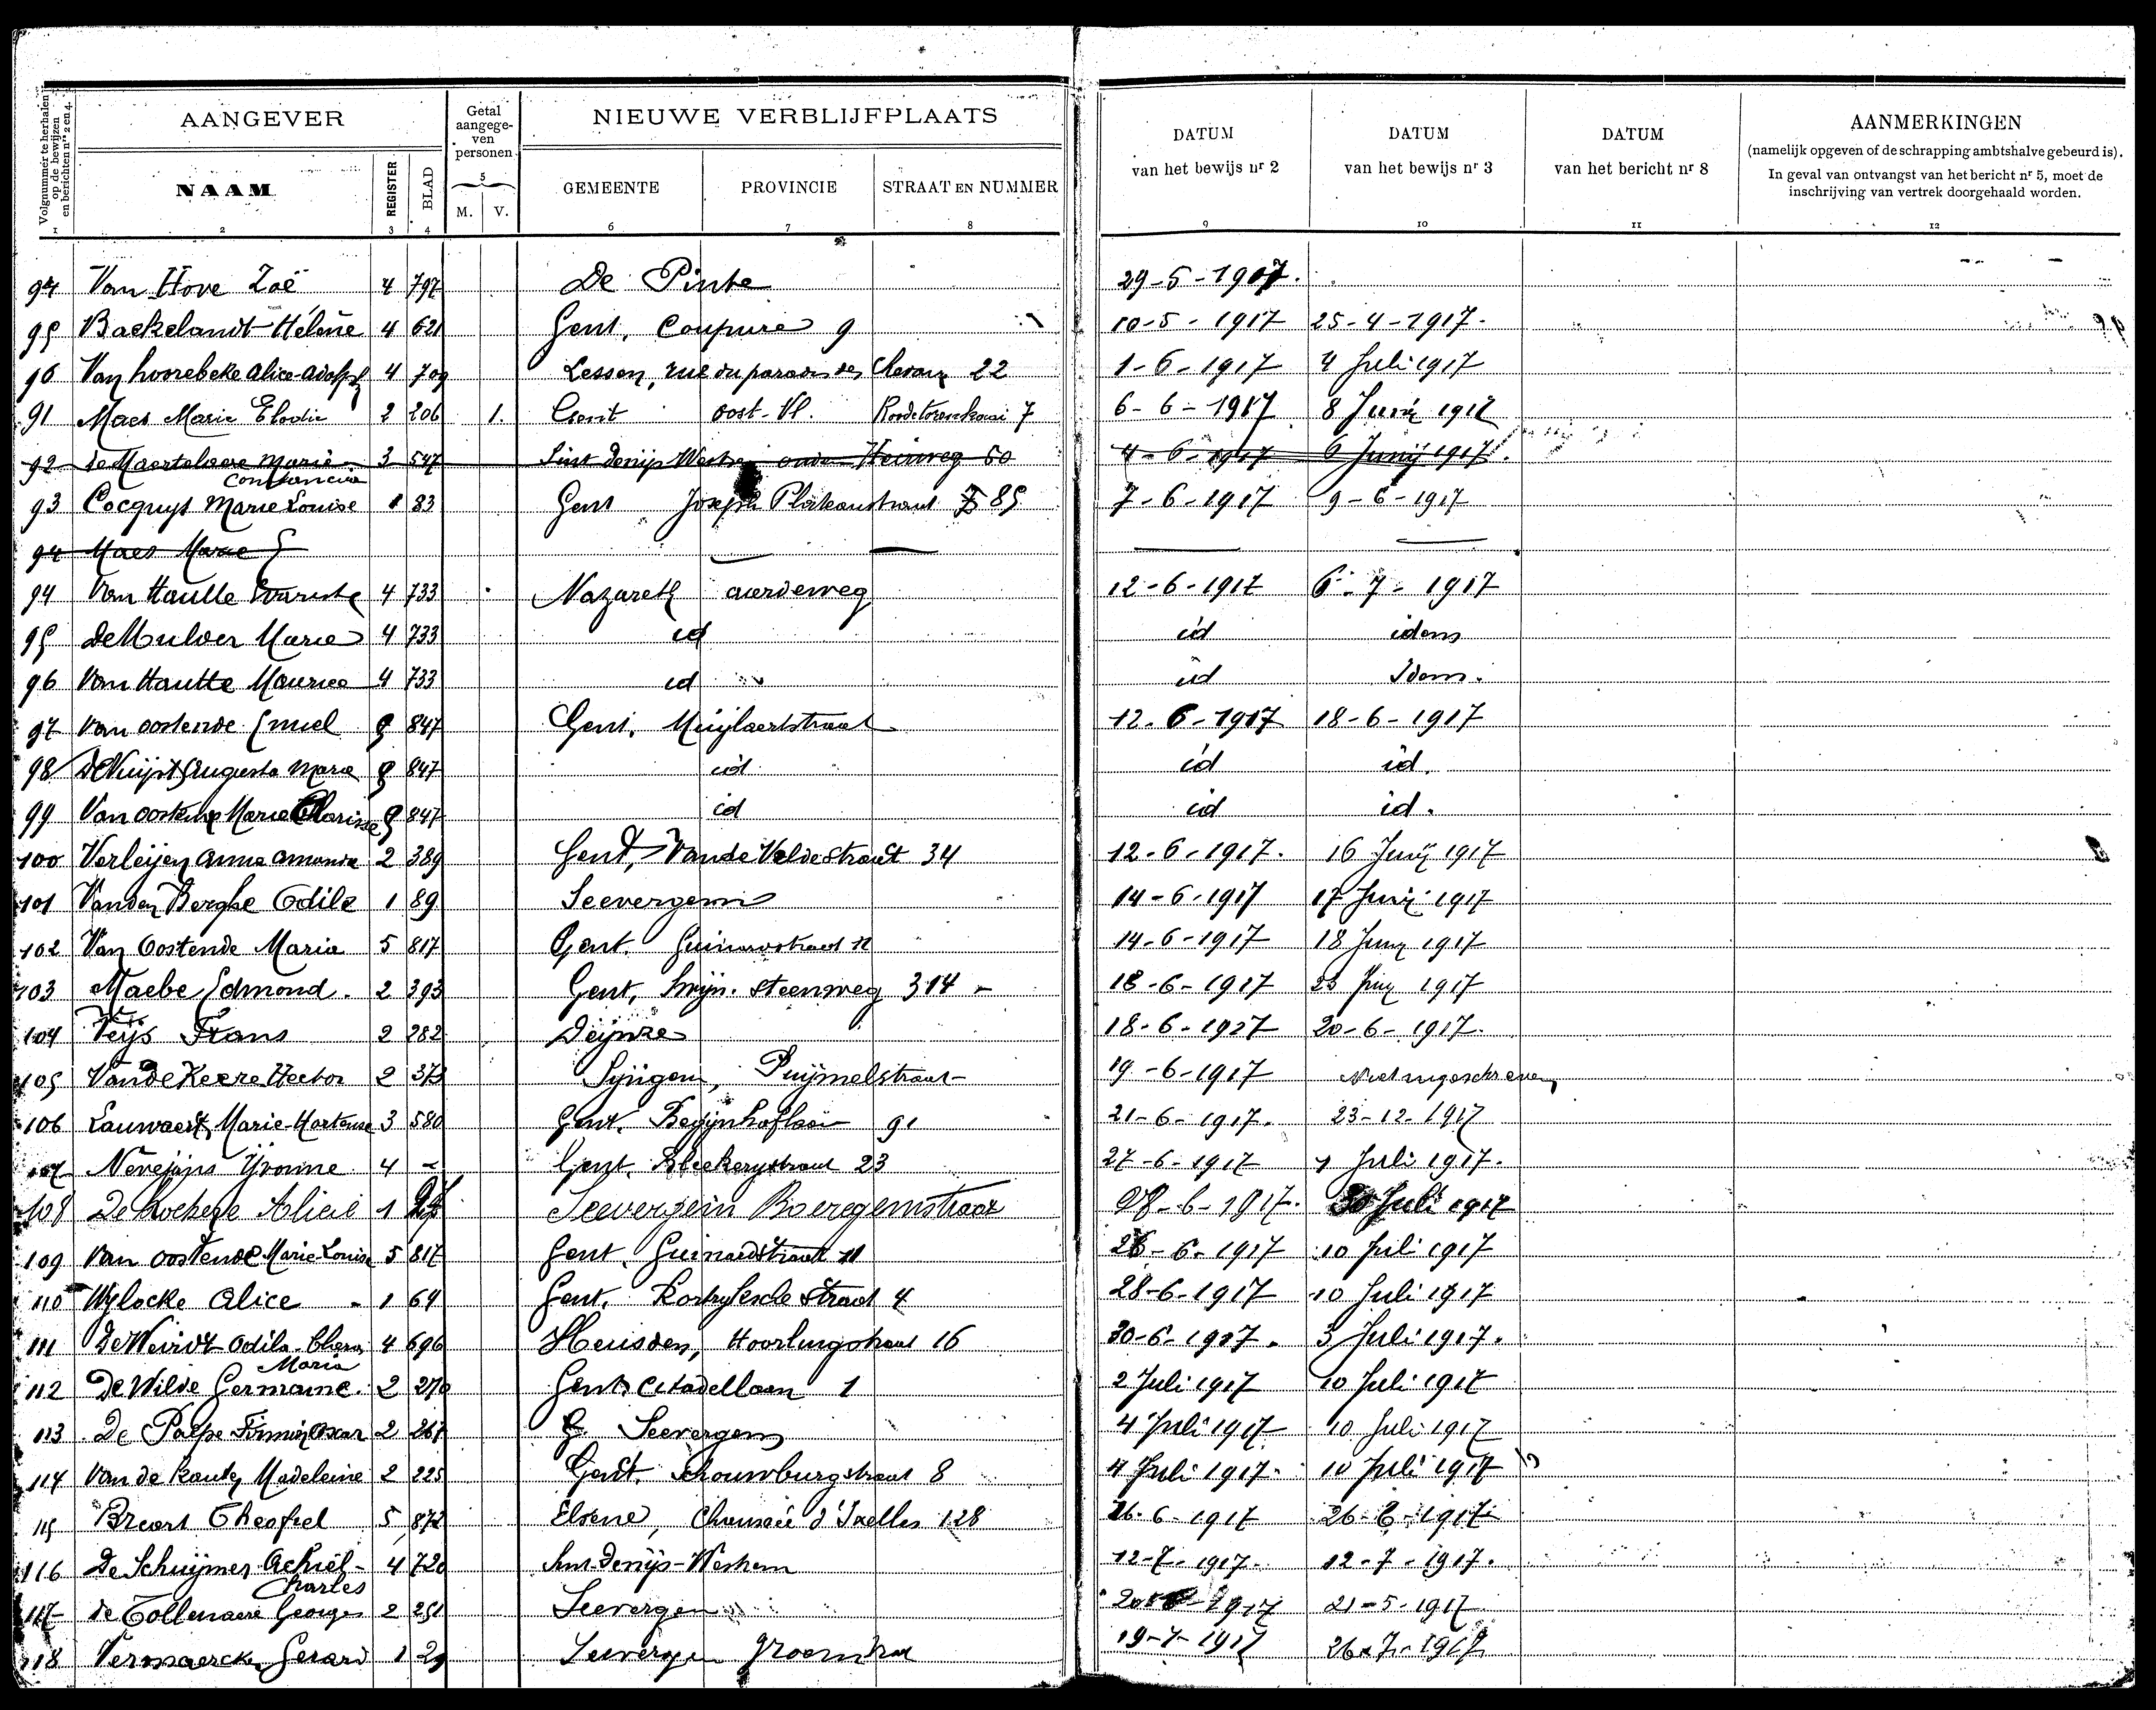 Volgnummer te herhalen op de bewijzen en berichten nrs 2 en 4.
AANGEVER
Getal aangegeven personen
NIEUWE VERBLIJFPLAATS
DATUM van het bewijs nr 2
DATUM van het bewijs nr 3
DATUM van het bericht nr 8
AANMERKINGEN
(namelijk opgeven of de schrapping ambtshalve gebeurd is).
In geval van ontvangst van het bericht nr 5, moet de
inschrijving van vertrek doorgehaald worden.
NAAM REGISTER BLAD M. V. GEMEENTE PROVINCIE STRAAT EN NUMMER
1 2 3 4 5 6 7 8 9 10 11 12
94 Van Hove Zoë 4 797 De Pinte 29-5-1917.
95 Baekelandt Hélène 4 621 Gent, Coupure 9 10-5-1917 25-4-1917.
96 Van hoorebeke Alice 4 709 Lessen, rue du paradis des 22 1-6-1917 4 Juli 1917
91 Maes Marie Elodie 2 206 1. Gent oost-Vl. 7 6-6-1917 8 Junij 1917
92 de Maertelaere Marie 3 547 Sint Denijs Westrem Heirweg 50 4-6-1917 6 Junij 1917.
Constancia
93 Cocquyt Marie Louise 1 83 Gent Joseph Plateaustraat 85 7-6-1917 9-6-1917
94 Maes Marie E
94 Van Hautte 4 733 Nazareth aardeweg 12-6-1917 6-7-1917
95 De Mulder Maria 4 733 id id idem
96 Van Hautte Maurice 4 733 id id Idem.
97 Van oostende Emiel 5 847 Gent, Muijlaertstraat 12-6-1917 18-6-1917
98 De Nuijst Augusta Maria 5 847 id id id.
99 Van oostende Marie Clarisse 5 847 id id id.
100 Verleijen Anna Amanda 2 389 Gent, Van de Veldestraat 34 12-6-1917. 16 Junij 1917
101 Vanden Berghe Odile 1 89 Seevergem 14-6-1917 17 Junij 1917
102 Van Oostende Maria 5 817 Gent. Guinardstraat 11 14-6-1917 18 Junij 1917
103 Maebe Edmond. 2 393 Gent, Swijn. steenweg 314 18-6-1917 1917
104 Veijs Frans 2 282 Deijnze 18-6-1927 20-6-1917.
105 Van de Keere Hector 2 373 Syngem, Puijmelstraat 19-6-1917 Niet ingeschreven
106 Lauwaert, Marie-Hortense 3 580 Gent. Begijnhoflaan 91 21-6-1917. 23-12-1917
107 Nevejans Yvonne 4 Gent. Bleekerijstraat 23 27-6-1917 1 Juli 1917.
108 Alice 1 Seevergem Boeregemstraat 28-6-1917. 30 Juli 1917
109 Van oostende Marie Louise 5 817 Gent. Guinardstraat 11 26-6-1917 10 Juli 1917
110 Wylocke Alice 1 64 Gent. straat 4 28-6-1917 10 Juli 1917
111 De Weirdt Odila 4 696 Heusden, 16 30-6-1917. 3 Juli 1917.
Maria
112 De Wilde Germaine. 2 270 Gent. Citadellaan 1 2 Juli 1917 10 Juli 1917
113 De Paepe Firmin Oscar 2 267 Seevergem 4 Juli 1917 10 Juli 1917
114 Van de Madeleine 2 225 Gent. Schouwburgstraat 8 4 Juli 1917. 10 Juli 1917
115 Theofiel 5 872 Elsene, Chaussée d'Ixelles 128 26-6-1917 26-6-1917
116 De Schuijmer Achiel- 4 720 Sint-Denijs-Westrem 12-7-1917. 12-7-1917.
Charles
117 de Tollenaere Georges 2 251 Seevergem 21-5-1917
118 Vermaercke Gerard 1 29 Seevergem 19-7-1917 26-7-1917